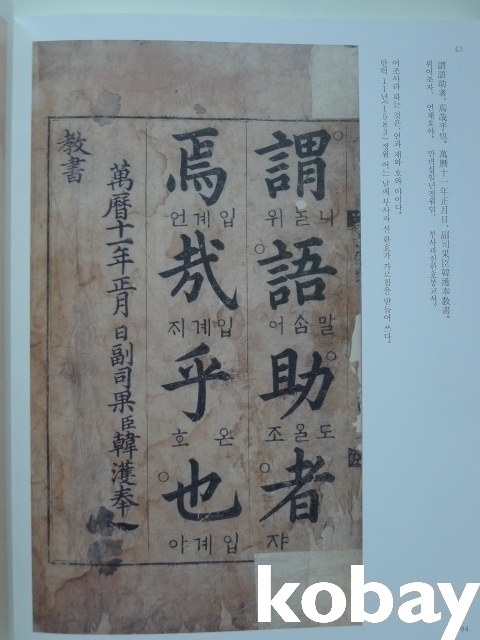 謂語助者、焉哉乎也。萬曆十一年正月日、副司果臣韓濩奉敎書。
위어조자、언재호야。만력십일년정월일、부사과신한호봉교서。
어조사라 하는 것은, 언과 재와 호와 야이다.
만력 11년(1583) 정월 어느 날에 부사과 신 한호가 가르침을 받들어 쓰다.
謂
語
어 말
助
조 도
者
쟈
焉
언계입
哉
계입
乎
호 온
也
계입
萬曆十一年正月日副司果臣韓濩奉
敎書
kobay